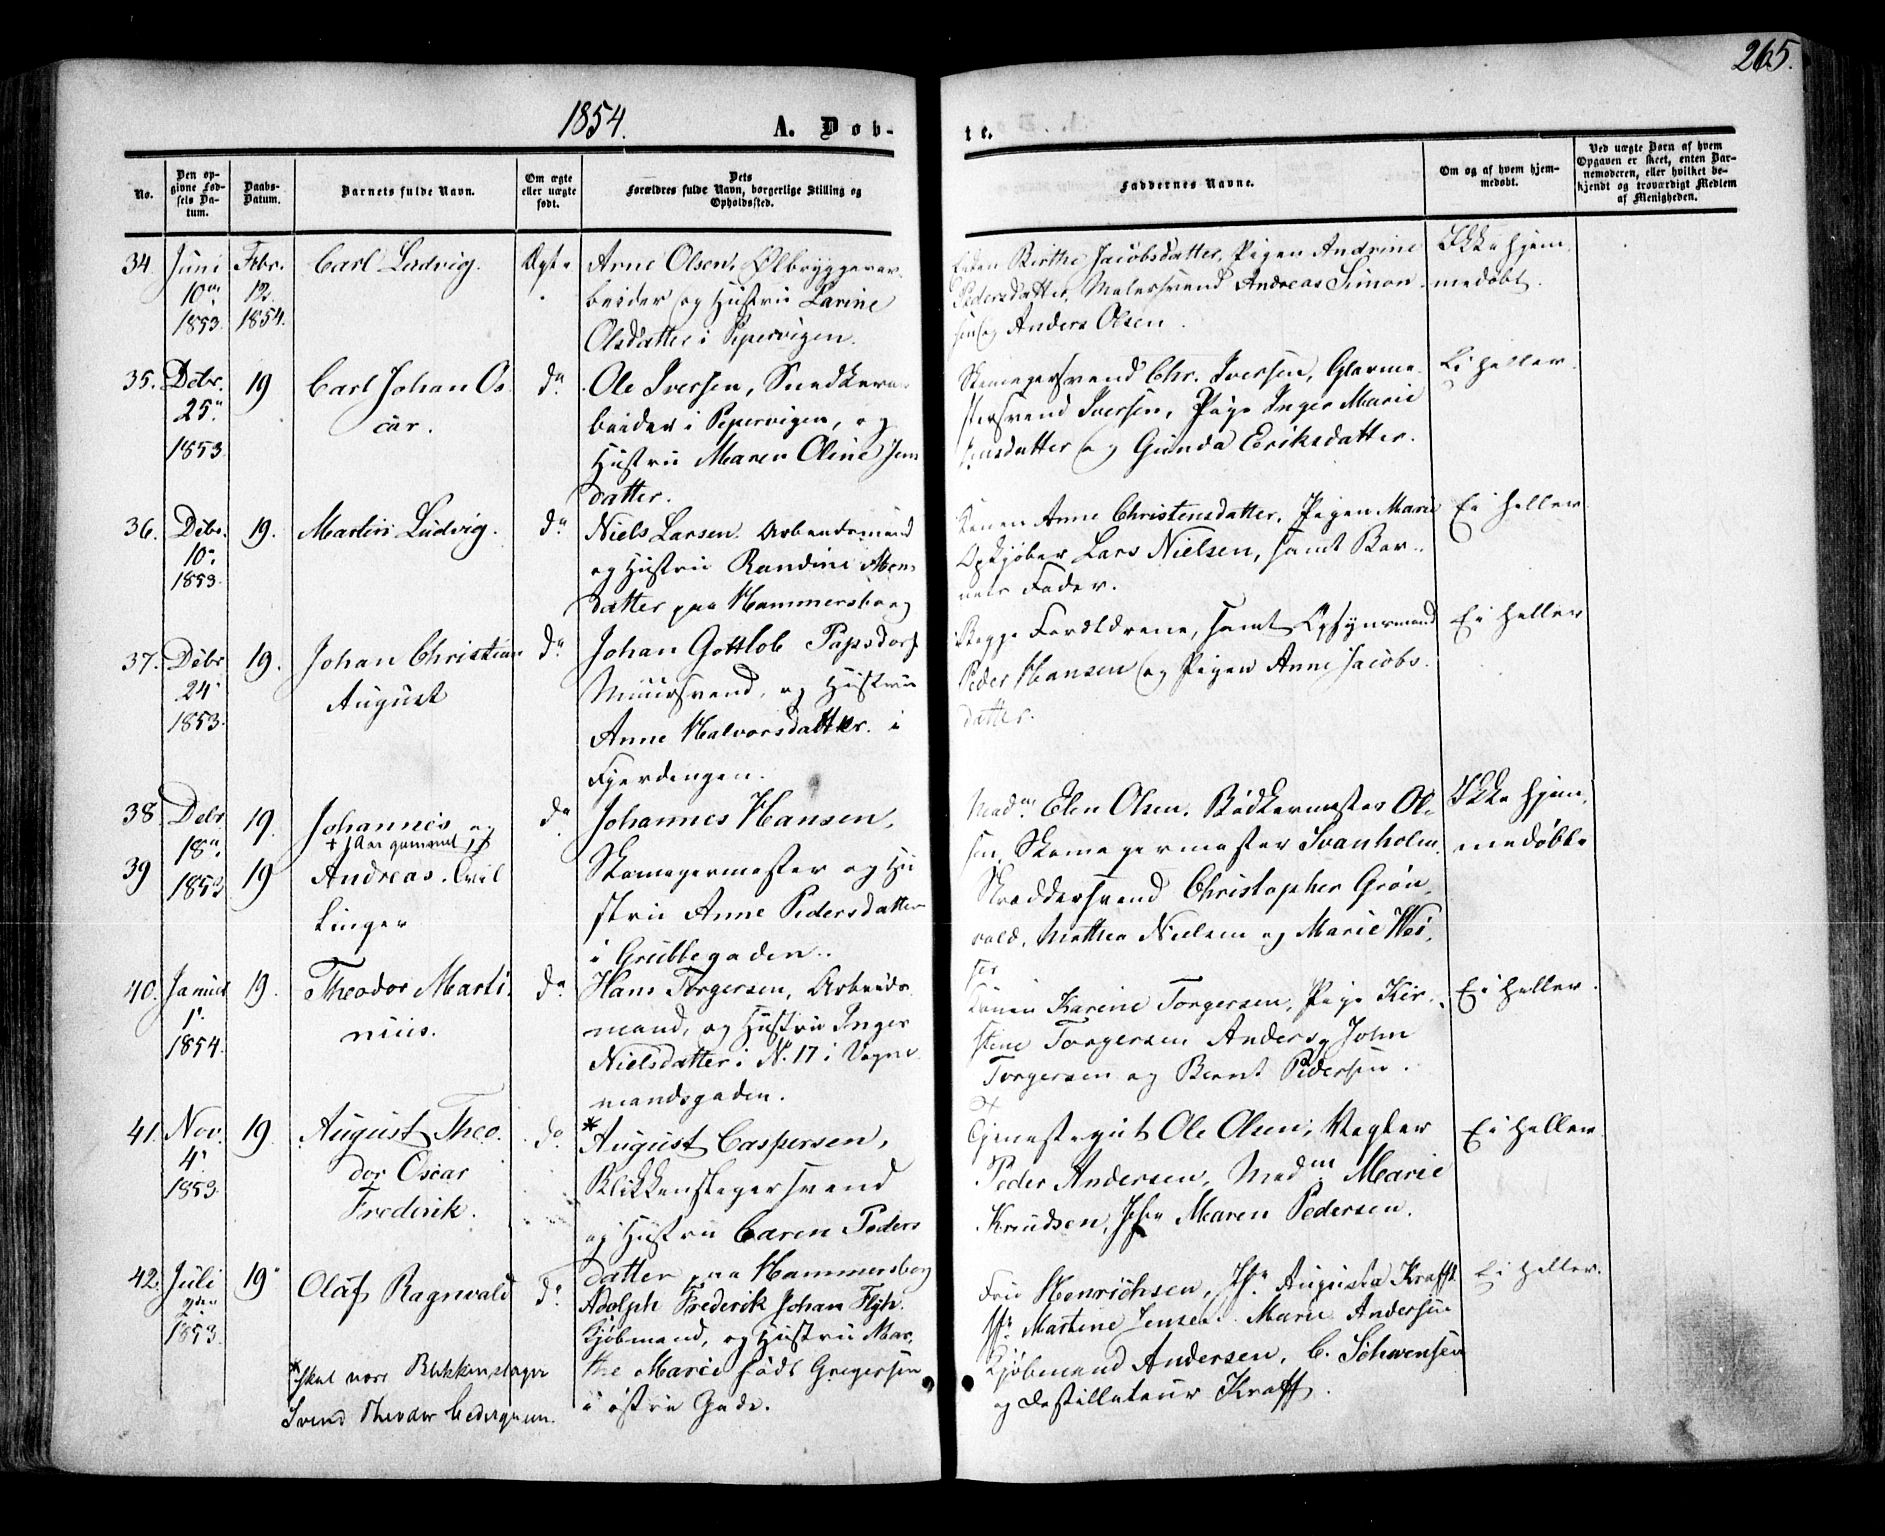 265.
1854.
A. Døb-
te.
No.
Den op-
givne Fød-
sels Da-
tum.
Daabs-
Datum.
Barnets fulde Navn.
Om ægte
eller uægte
født.
Dets
Forældres fulde Navn, borgerlige Stilling og
Opholdssted.
Faddernes Navne.
Om og af hvem hjem-
medøbt.
Ved uægte Børn af hvem
Opgaven er skeet, enten Bar-
nemoderen, eller hvilket be-
kjendt og troværdigt Medlem
af Menigheden.
34.
Juni
10
1853.
Febr.
12.
1854.
Carl Ludvig.
Ægte
Arne Olsen, Ølbryggerar-
beider og Hustru Larine
Olsdatter i Pipervigen.
Birthe Jacobsdatter, Pigen Andrine
Pedersdatter, Malersvend Andreas Simon-
sen og Anders Olsen.
Ikke hjem-
medøbt.
35.
Debr.
25
1853
19
Carl Johan Os-
car.
do
Ole Iversen, Snedkerar-
beider i Pipervigen, og
Hustru Maren Oline Jens
datter.
Skomagersvend Chr. Iversen, Glarme-
stersvend Iversen, Pige Inger Marie
Jensdatter og Gunda Eriksdatter.
Ei heller.
36.
Debr.
10
1853.
19.
Martin Ludvig.
do
Niels Larsen. Arbeidsmand
og Hustru Randine
datter paa Hammersborg
Konen Anne Christensdatter, Pigen Marie
Opkjøber Lars Nielsen, samt Bar-
nets Fader.
Ei heller
37.
Debr
24
1853.
19.
Johan Christian
August
do
Johan Gottlob Papsdorf
Muursvend, og Hustru
Anne Halvorsdatter. i
Fjerdingen.
Begge Forældrene, samt Opsynsmand
Peder Hansen og Pigen Anne Jacobs-
datter.
Ei heller
38
Debr
18
1853
19.
Johannes og
39
19
Andreas. Tvil
linger
do
Johannes Hansen,
Skomagermester og Hu
stru Anne Pedersdatter
i Grubbegaden.
Madm Elen Olsen. Bødkermester Ol-
sen, Skomagermester Svanholm.
Skræddersvend Christopher Grøn-
vold, Mathea Nielsen og Marie
Ikke hjem-
medøbte
40.
Januar
1
1854.
19.
Theodor Marti-
nius.
do
Hans Torgersen, Arbeids-
mand, og Hustru Inger
Nielsdatter i N. 17 i Vogn-
mandsgaden.
Konen Karine Torgersen, Pige Kir-
stine Torgersen Anders, John
Torgersen og Bernt Pedersen.
Ei heller.
41.
Nov.
4
1853.
19.
August Theo-
dor Oscar
Frederik.
do
* August Caspersen,
Blikkenslagersvend
og Hustru Caren Peders
datter paa Hammersborg
Tjenestegut Ole Olsen, Vægter
Peder Andersen, Madm Marie
Knudsen, Jfr Maren Pedersen.
Ei heller
42.
Juli
2den
1853.
19
Olaf Ragnvald
do
Adolph Frederik Johan
Kjøbmand, og Hustru Mar-
the Marie født Gregersen
i østre Gade.
Fru Henrichsen, Jfr. Augusta Krafft.
Jfr Martine Jensen. Marie Andersen
Kjøbmand Andersen, C. Schwensen
og Destillateur Krafft.
Ei heller.
* skal være Blikkenslager
Svend Theodor Cedergreen.